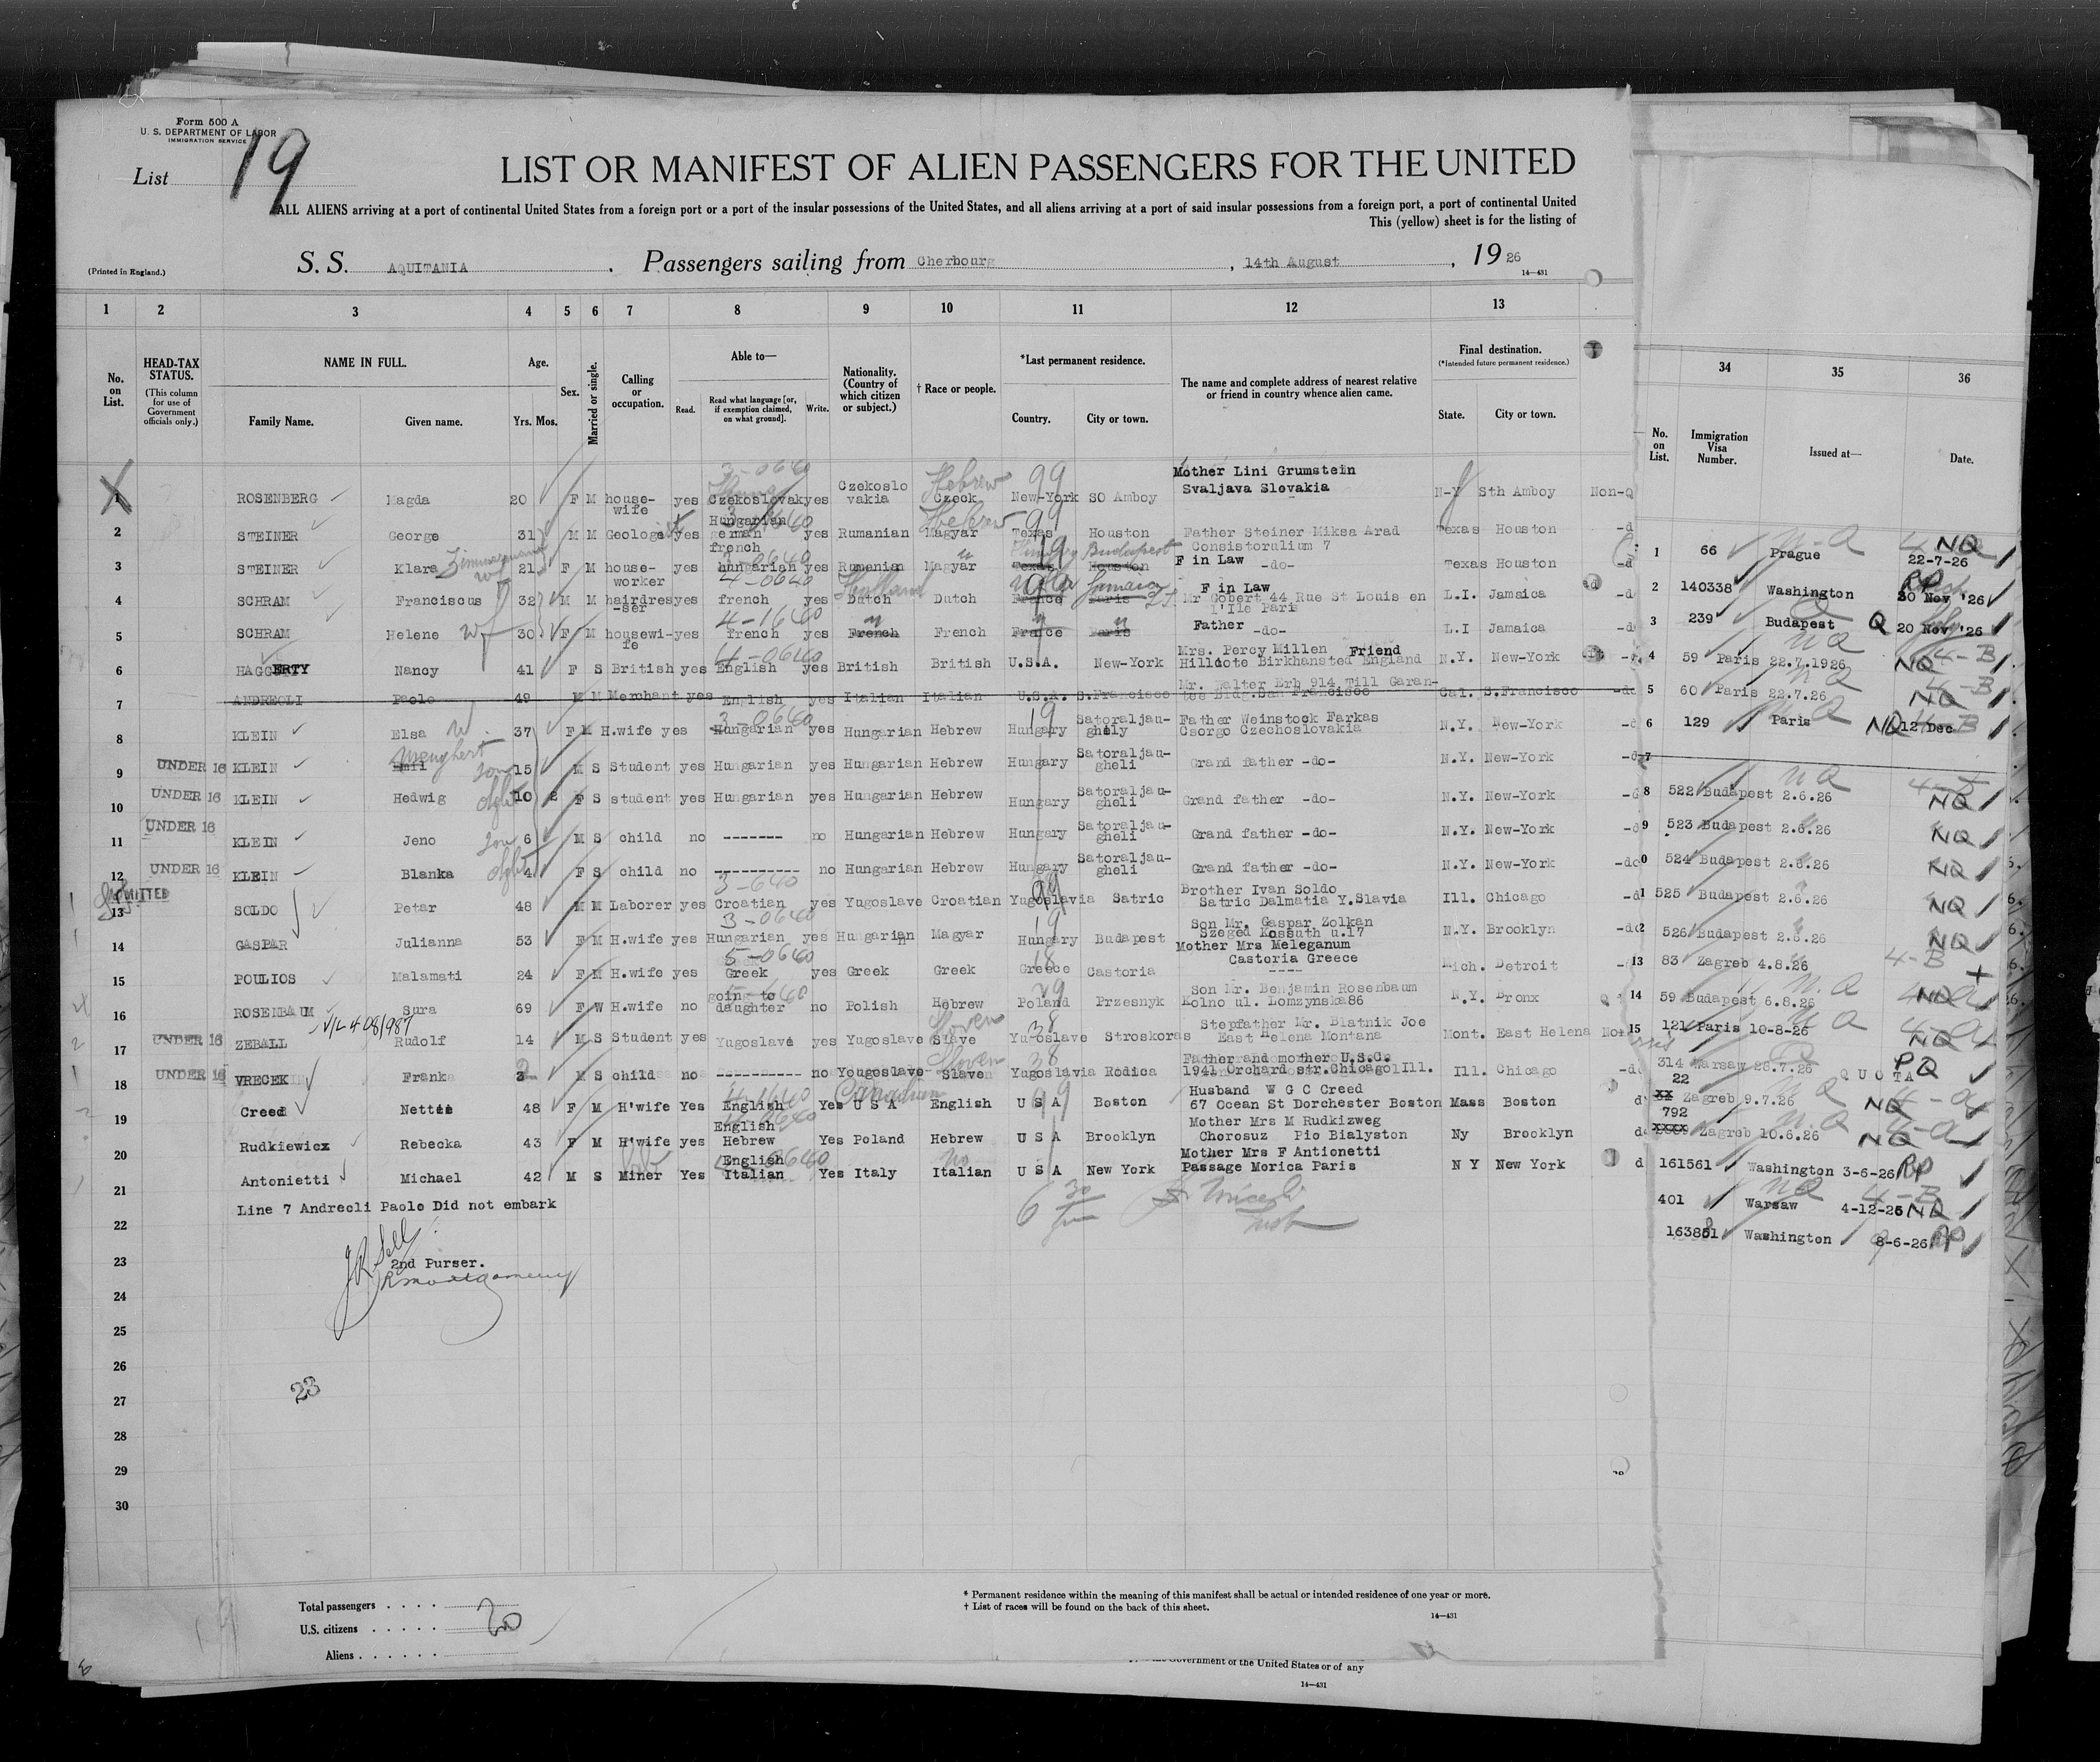 Form 500 A
U. S. DEPARTMENT OF LABOR
IMMIGRATION SERVICE
List 19
LIST OR MANIFEST OF ALIEN PASSENGERS FOR THE UNITED
ALL ALIENS arriving at a port of continental United States from a foreign port or a port of the insular possessions of the United States, and all aliens arriving at a port of said insular possessions from a foreign port, a port of continental United
This (yellow) sheet is for the listing of
(Printed in England.)
S. S. AQUITANIA . Passengers sailing from Cherbourg , 14th August , 19 26
14—431
1 2 3 4 5 6 7 8 9 10 11 12 13
No. on List.
HEAD-TAX STATUS.
(This column for use of Government officials only.)
NAME IN FULL.
Family Name. Given name.
Age.
Yrs. Mos.
Sex.
Married or single.
Calling or occupation.
Able to—
Read. Read what language [or, if exemption claimed, on what ground]. Write.
Nationality. (Country of which citizen or subject.)
† Race or people.
*Last permanent residence.
Country. City or town.
The name and complete address of nearest relative or friend in country whence alien came.
Final destination.
(*Intended future permanent residence.)
State. City or town.
34 35 36
No. on List.
Immigration Visa Number.
Issued at—
Date.
1 ROSENBERG Magda 20 F M house-wife yes Czekoslovak yes Czekoslo vakia Czeck Hebrew New-York SO Amboy Mother Lini Grumstein Svaljava Slovakia N-Y Sth Amboy Non-Q
2 STEINER George 31 M M Geologe yes Hungarian german french yes Rumanian Magyar Hebrew Texas Houston Father Steiner Miksa Arad Consistorulium 7 Texas Houston -d
3 STEINER Klara Zimmermann wf 21 F M house-worker yes hungarian yes Rumanian Magyar Texas Houston Budapest F in Law -do- Texas Houston -d
4 SCHRAM Franciscus 32 M M hairdres-ser yes french yes Dutch Holland Dutch France Paris Jamaica F in Law Mr Gobert 44 Rue St Louis en l'Ile Paris L.I. Jamaica -d
5 SCHRAM Helene wf 30 F M housewi-fe yes french yes French French France Paris Father -do- L.I Jamaica -d
6 HAGGERTY Nancy 41 F S British yes English yes British British U.S.A. New-York Mrs. Percy Millen Friend Hillcote Birkhansted England N.Y. New-York
7 ANDREOLI Paolo 49 M M Merchant yes English yes Italian Italian U.S.A. S.Francisco Mr. Walter Erb 914 Till Garan-tee Bldg.San Francisco Cal. S.Francisco -do
8 KLEIN Elsa W 37 F M H.wife yes Hungarian yes Hungarian Hebrew Hungary Satoraljau-ghely Father Weinstock Farkas Csorgo Czechoslovakia N.Y. New-York
9 UNDER 16 KLEIN Emil Son 15 M S Student yes Hungarian yes Hungarian Hebrew Hungary Satoraljau-gheli Grand father -do- N.Y. New-York -d
10 UNDER 16 KLEIN Hedwig 10 F S student yes Hungarian yes Hungarian Hebrew Hungary Satoraljau-gheli Grand father -do- N.Y. New-York
11 UNDER 16 KLEIN Jeno Son 6 M S child no ------- no Hungarian Hebrew Hungary Satoraljau-gheli Grand father -do- N.Y. New-York
12 UNDER 16 KLEIN Blanka 4 F S child no ---------- no Hungarian Hebrew Hungary Satoraljau-gheli Grand father -do- N.Y. New-York -do
13 ADMITTED SOLDO Petar 48 M M Laborer yes Croatian yes Yugoslave Croatian Yugoslavia Satric Brother Ivan Soldo Satric Dalmatia Y.Slavia Ill. Chicago -d
14 GASPAR Julianna 53 F M H.wife yes Hungarian yes Hungarian Magyar Hungary Budapest Son Mr. Gaspar Zolkan Szeged Kossuth u.17 N.Y. Brooklyn -do
15 POULIOS Malamati 24 F M H.wife yes Greek yes Greek Greek Greece Castoria Mother Mrs Meleganum Castoria Greece ---- Mich. Detroit
16 ROSENBAUM Sura 69 F W H.wife no going to daughter no Polish Hebrew Poland Przesnyk Son Mr. Benjamin Rosenbaum Kolno ul. Lomzynska86 N.Y. Bronx
17 UNDER 16 ZEBALL Rudolf 14 M S Student yes Yugoslave yes Yugoslave Slave Sloven Yugoslave Stroskoras Stepfather Mr. Blatnik Joe East Helena Montana Mont. East Helena
18 UNDER 16 VRECEK Frank 3 M S child no ---------- no Yougoslave Slave Sloven Yugoslavia Rodica Father and mother U.S.C. 1941 Orchard str.Chicago Ill. Ill. Chicago
19 Creed Nettie 48 F M H'wife Yes English Yes U S A Canadian English U S A Boston Husband W G C Creed 67 Ocean St Dorchester Boston Mass Boston
20 Rudkiewicz Rebecka 43 F M H'wife yes English Hebrew Yes Poland Hebrew U S A Brooklyn Mother Mrs M Rudkizweg Chorosuz Pio Bialyston Ny Brooklyn
21 Antonietti Michael 42 M S Miner Yes English Italian Yes Italy Italian U S A New York Mother Mrs F Antionetti Passage Morica Paris N Y New York
Line 7 Andreoli Paolo Did not embark
22
23
2nd Purser.
24
25
26
27
28
29
30
23
1 66 Prague 22-7-26 NQ
2 140338 Washington 30 Nov '26 RP
3 239 Budapest Q 20 Nov '26
4 59 Paris 22.7.1926 NQ 4-B
5 60 Paris 22.7.26 NQ 4-B
6 129 Paris NQ 12 Dec
7
8 522 Budapest 2.6.26 NQ
9 523 Budapest 2.6.26 NQ
0 524 Budapest 2.6.26 NQ
1 525 Budapest 2.6.26 NQ
2 526 Budapest 2.6.26 NQ
13 83 Zagreb 4.8.26 4-B
14 59 Budapest 6.8.26 NQ
15 121 Paris 10-8-26 NQ
314 Warsaw 28.7.26 QUOTA PQ
22 Zagreb 9.7.26 NQ
792 Zagreb 10.6.26 NQ
161561 Washington 3-6-26 RP
401 Warsaw 4-12-25 NQ 4-B
163851 Washington 8-6-26 RP
* Permanent residence within the meaning of this manifest shall be actual or intended residence of one year or more.
† List of races will be found on the back of this sheet.
14—431
Total passengers . . . . 20
U.S. citizens . . . . .
Aliens . . . . . .
Government of the United States or of any
14—431